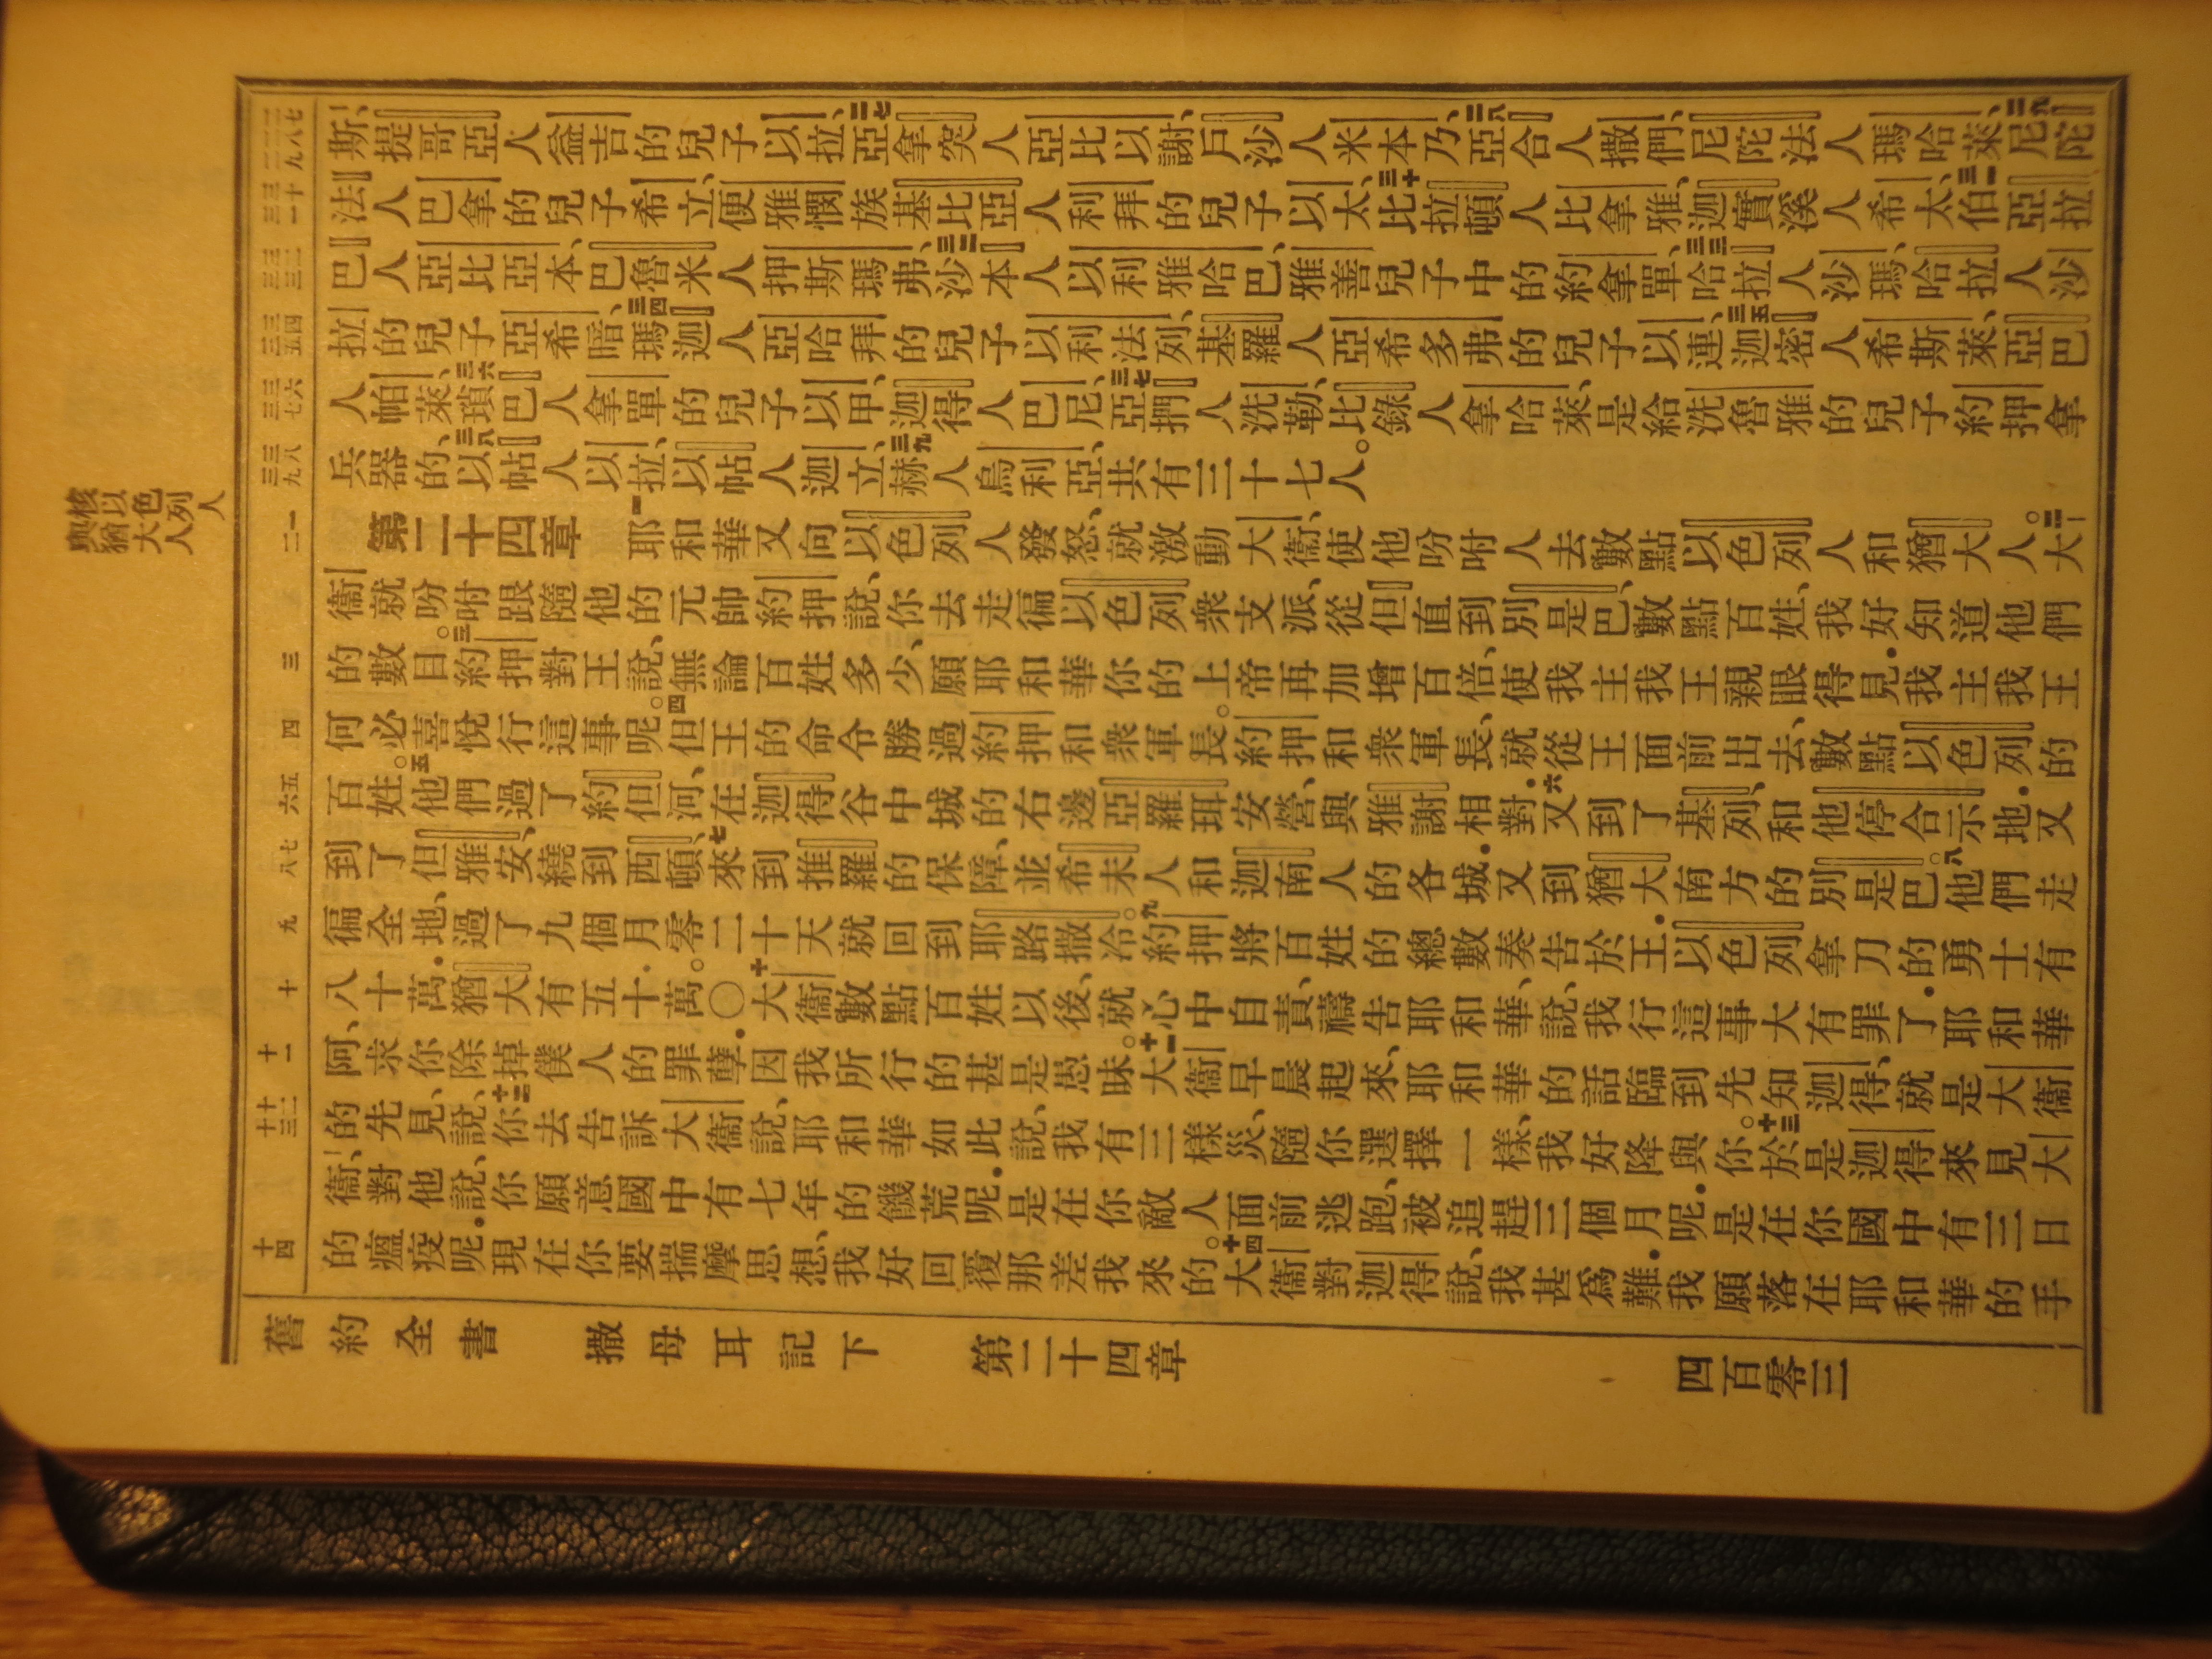 斯、提哥亞人益吉的兒子以拉、二七亞拿突人亞比以謝、戶沙人米本乃、二八亞合人撒們、尼陀法人瑪哈萊、二九尼陀
法人巴拿的兒子希立、便雅憫族基比亞人利拜的兒子以太、三十比拉頓人比拿雅、迦實溪人希太、三一伯亞拉
巴人亞比亞本、巴魯米人押斯瑪弗、三二沙本人以利雅哈巴、雅善兒子中的約拿單、三三哈拉人沙瑪、哈拉人沙
拉的兒子亞希暗、三四瑪迦人亞哈拜的兒子以利法列、基羅人亞希多弗的兒子以連、三五迦密人希斯萊、亞巴
人帕萊、三六瑣巴人拿單的兒子以甲、迦得人巴尼、三七亞捫人洗勒、比錄人拿哈萊、是給洗魯雅的兒子約押拿
兵器的、三八以帖人以拉、以帖人迦立、三九赫人烏利亞、共有三十七人。
第二十四章 一耶和華又向以色列人發怒、就激動大衞、使他吩咐人去數點以色列人和猶大人。二大
衞就吩咐跟隨他的元帥約押說、你去走徧以色列衆支派、從但直到別是巴、數點百姓、我好知道他們
的數目。三約押對王說、無論百姓多少、願耶和華你的上帝再加增百倍、使我主我王親眼得見．我主我王
何必喜悅行這事呢。四但王的命令勝過約押和衆軍長。約押和衆軍長、就從王面前出去、數點以色列的
百姓。五他們過了約但河、在迦得谷中城的右邊亞羅珥安營、與雅謝相對．六又到了基列、和他停合示地．又
到了但雅安、繞到西頓、七來到推羅的保障、並希未人和迦南人的各城．又到猶大南方的別是巴。八他們走
徧全地、過了九個月零二十天、就回到耶路撒冷。九約押將百姓的總數奏告於王．以色列拿刀的勇士有
八十萬．猶大有五十萬。○十大衞數點百姓以後、就心中自責、禱告耶和華、說、我行這事大有罪了．耶和華
阿、求你除掉僕人的罪孽．因我所行的甚是愚昧。十一大衞早晨起來、耶和華的話臨到先知迦得、就是大衞
的先見、說、十二你去告訴大衞說、耶和華如此說、我有三樣災、隨你選擇一樣、我好降與你。十三於是迦得來見大
衞、對他說、你願意國中有七年的饑荒呢．是在你敵人面前逃跑、被追趕三個月呢．是在你國中有三日
的瘟疫呢．現在你要揣摩思想、我好回覆那差我來的。十四大衞對迦得說、我甚爲難．我願落在耶和華的手
核以色列人
與猶大人
舊約全書 撒母耳記下 第二十四章 四百零三